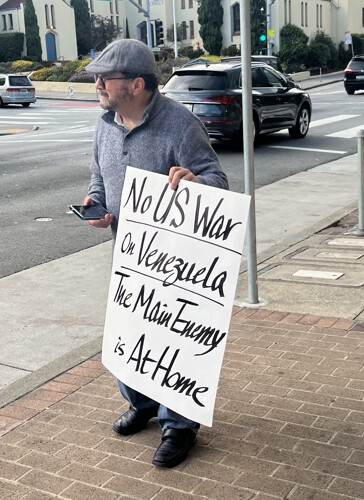 No US War
On Venezuela
The Main Enemy
is At Home